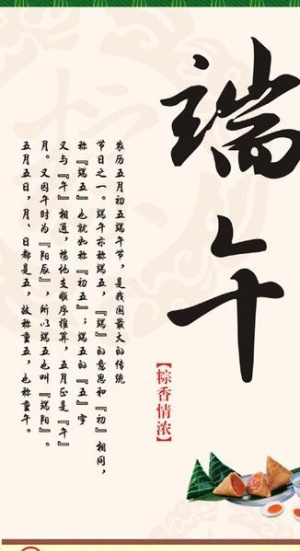 端午
【粽香情浓】
农历五月初五端午节，是我国最大的传统
节日之一。端午亦称端五，『端』的意思和『初』相同，
称『端五』也就如称『初五』；端五的『五』字
又与『午』相通，按地支顺序推算，五月正是『午』
月。又因午时为『阳辰』，所以端五也叫『端阳』。
五月五日，月、日都是五，故称重五，也称重午。